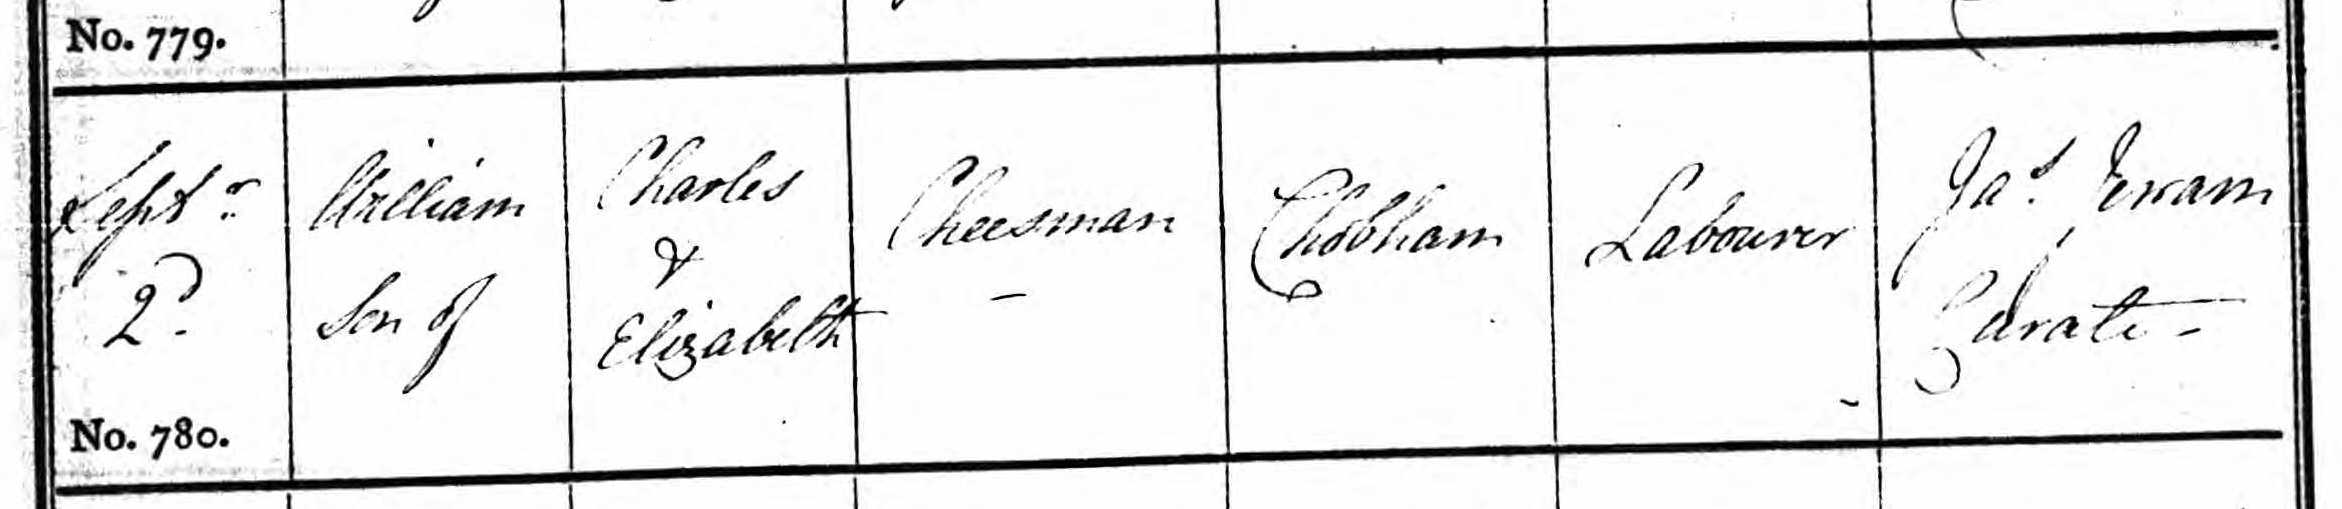 No. 779.
Septr. 2d.
William Son of
Charles & Elizabeth
Cheesman
Chobham
Labourer
Jas. Jerram
Curate
No. 780.